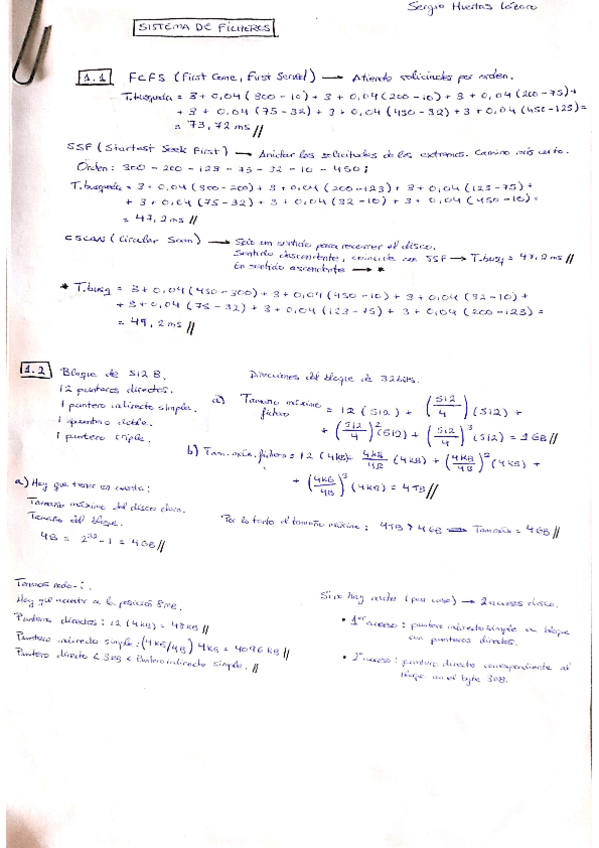 Sergio Huertas Lózaro
SISTEMA DE FICHEROS
1.1 FCFS (First Come, First Served) → Atiende solicitudes por orden.
T.busqueda = 3 + 0,04 (300 - 10) + 3 + 0,04 (200 - 10) + 3 + 0,04 (200 - 75) +
+ 3 + 0,04 (75 - 32) + 3 + 0,04 (450 - 32) + 3 + 0,04 (450 - 123) =
= 73,72 ms //
SSF (Shortest Seek First) → las solicitudes de los extremos. Camino más corto.
Orden: 300 - 200 - 123 - 75 - 32 - 10 - 450;
T.busqueda = 3 + 0,04 (300 - 200) + 3 + 0,04 (200 - 123) + 3 + 0,04 (123 - 75) +
+ 3 + 0,04 (75 - 32) + 3 + 0,04 (32 - 10) + 3 + 0,04 (450 - 10) =
= 47,2 ms //
CSCAN (Circular Scan) → Sólo un sentido para recorrer el disco.
Sentido descendente, coincide con SSF → T.busq = 47,2 ms //
En sentido ascendente → *
* T.busq = 3 + 0,04 (450 - 300) + 3 + 0,04 (450 - 10) + 3 + 0,04 (32 - 10) +
+ 3 + 0,04 (75 - 32) + 3 + 0,04 (123 - 75) + 3 + 0,04 (200 - 123) =
= 49,2 ms //
1.2 Bloque de 512 B.
12 punteros directos.
1 puntero indirecto simple.
1 puntero doble.
1 puntero triple.
Direcciones del bloque de 32 bits.
a) Tamaño máximo fichero = 12 (512) + (512/4) (512) +
+ (512/4)² (512) + (512/4)³ (512) = 1 GB //
b) Tam. máx. fichero = 12 (4KB) + 4KB/4B (4KB) + (4KB/4B)² (4KB) +
+ (4KB/4B)³ (4KB) = 4TB //
a) Hay que tener en cuenta:
Tamaño máximo del disco duro.
Tamaño del bloque.
4B = 2³² - 1 = 4GB //
Por lo tanto el tamaño máximo: 4TB > 4GB → Tamaño = 4GB //
Tenemos nodo-i.
Hay que acceder a la posición 3MB.
Punteros directos: 12 (4KB) = 48KB //
Puntero indirecto simple: (4KB/4B) 4KB = 4096 KB //
Puntero directo < 3MB < Puntero indirecto simple. //
Si no hay nodos (por caso) → 2 accesos disco.
• 1er acceso: puntero indirecto simple, un bloque
con punteros directos.
• 2º acceso: puntero directo correspondiente al
bloque con el byte 3MB.